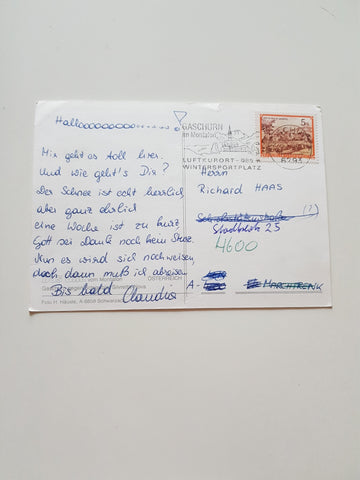 Halloooooooooo........
Mir geht es toll hier.
Und wie geht's Dir?
Der Schnee ist echt herrlich
aber ganz ehrlich
eine Woche ist zu kurz,
Gott sei Dank noch kein Sturz.
Nun es wird sich noch weisen,
doch dann muß ich abreisen.
Bis bald Claudia
ÖSTERREICH
Foto H. Häusle, A-6858 Schwarzach
GASCHURN
im Montafon
LUFTKURORT - 985 m
WINTERSPORTPLATZ
5
6793
Herrn
Richard HAAS
(?)
Stadtplatz 25
4600
A-
MARCHTRENK